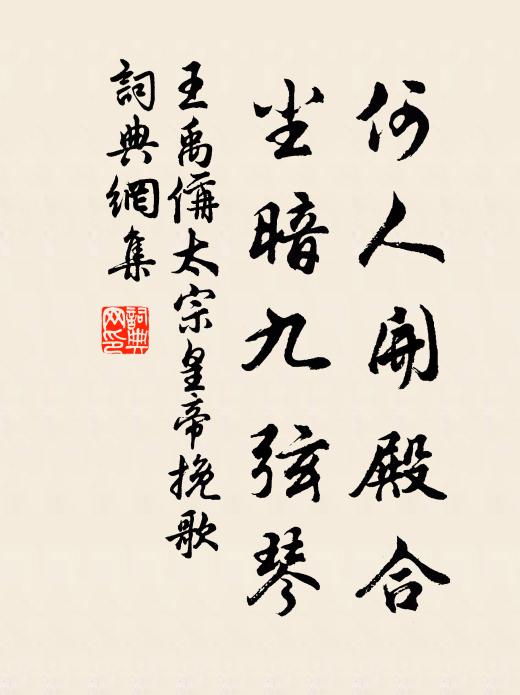 何人開殿合
尘暗九弦琴
王禹偁太宗皇帝挽歌
詞典網集
詞典
网印